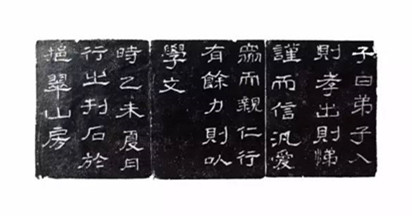 子曰弟子入
則孝出則悌
謹而信汎愛
衆而親仁行
有餘力則以
學文
時乙未夏月
行之刊石於
挹翠山房